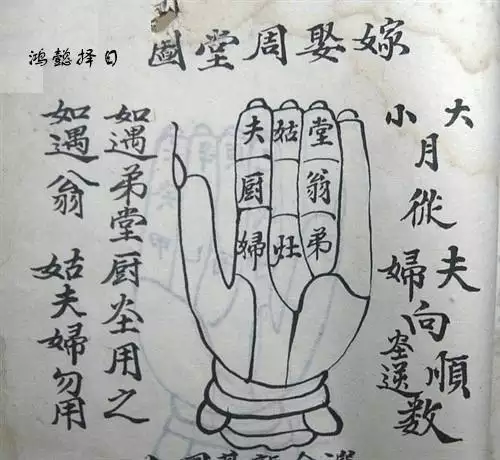 鴻懿择日
嫁娶周堂圖
大小月從夫婦向順灶逆數
夫 姑 堂
廚 翁
婦 灶 弟
如遇弟堂廚灶用之
如遇翁 姑夫婦勿用